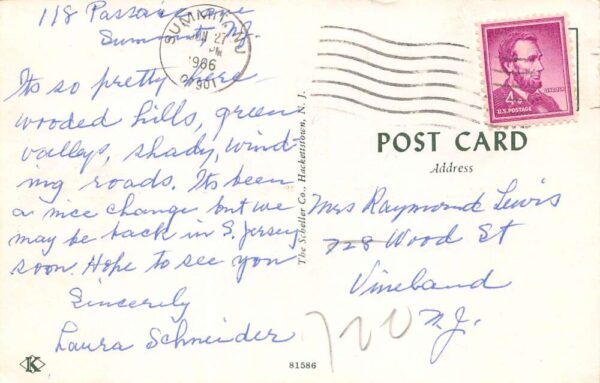 118 Passaic ave
Summit, N.J.
SUMMIT, NJ
JUN 27
PM
1966
07901
Its so pretty here
wooded hills, green
valleys, shady, wind
ing roads. Its been
a nice change but we
may be back in S. Jersey
soon. Hope to see you
Sincerely
Laura Schneider
K
The Scheller Co., Hackettstown, N. J.
81586
4¢
LINCOLN
U.S. POSTAGE
POST CARD
Address
Mrs Raymond Lewis
728 Wood St
Vineland
N.J.